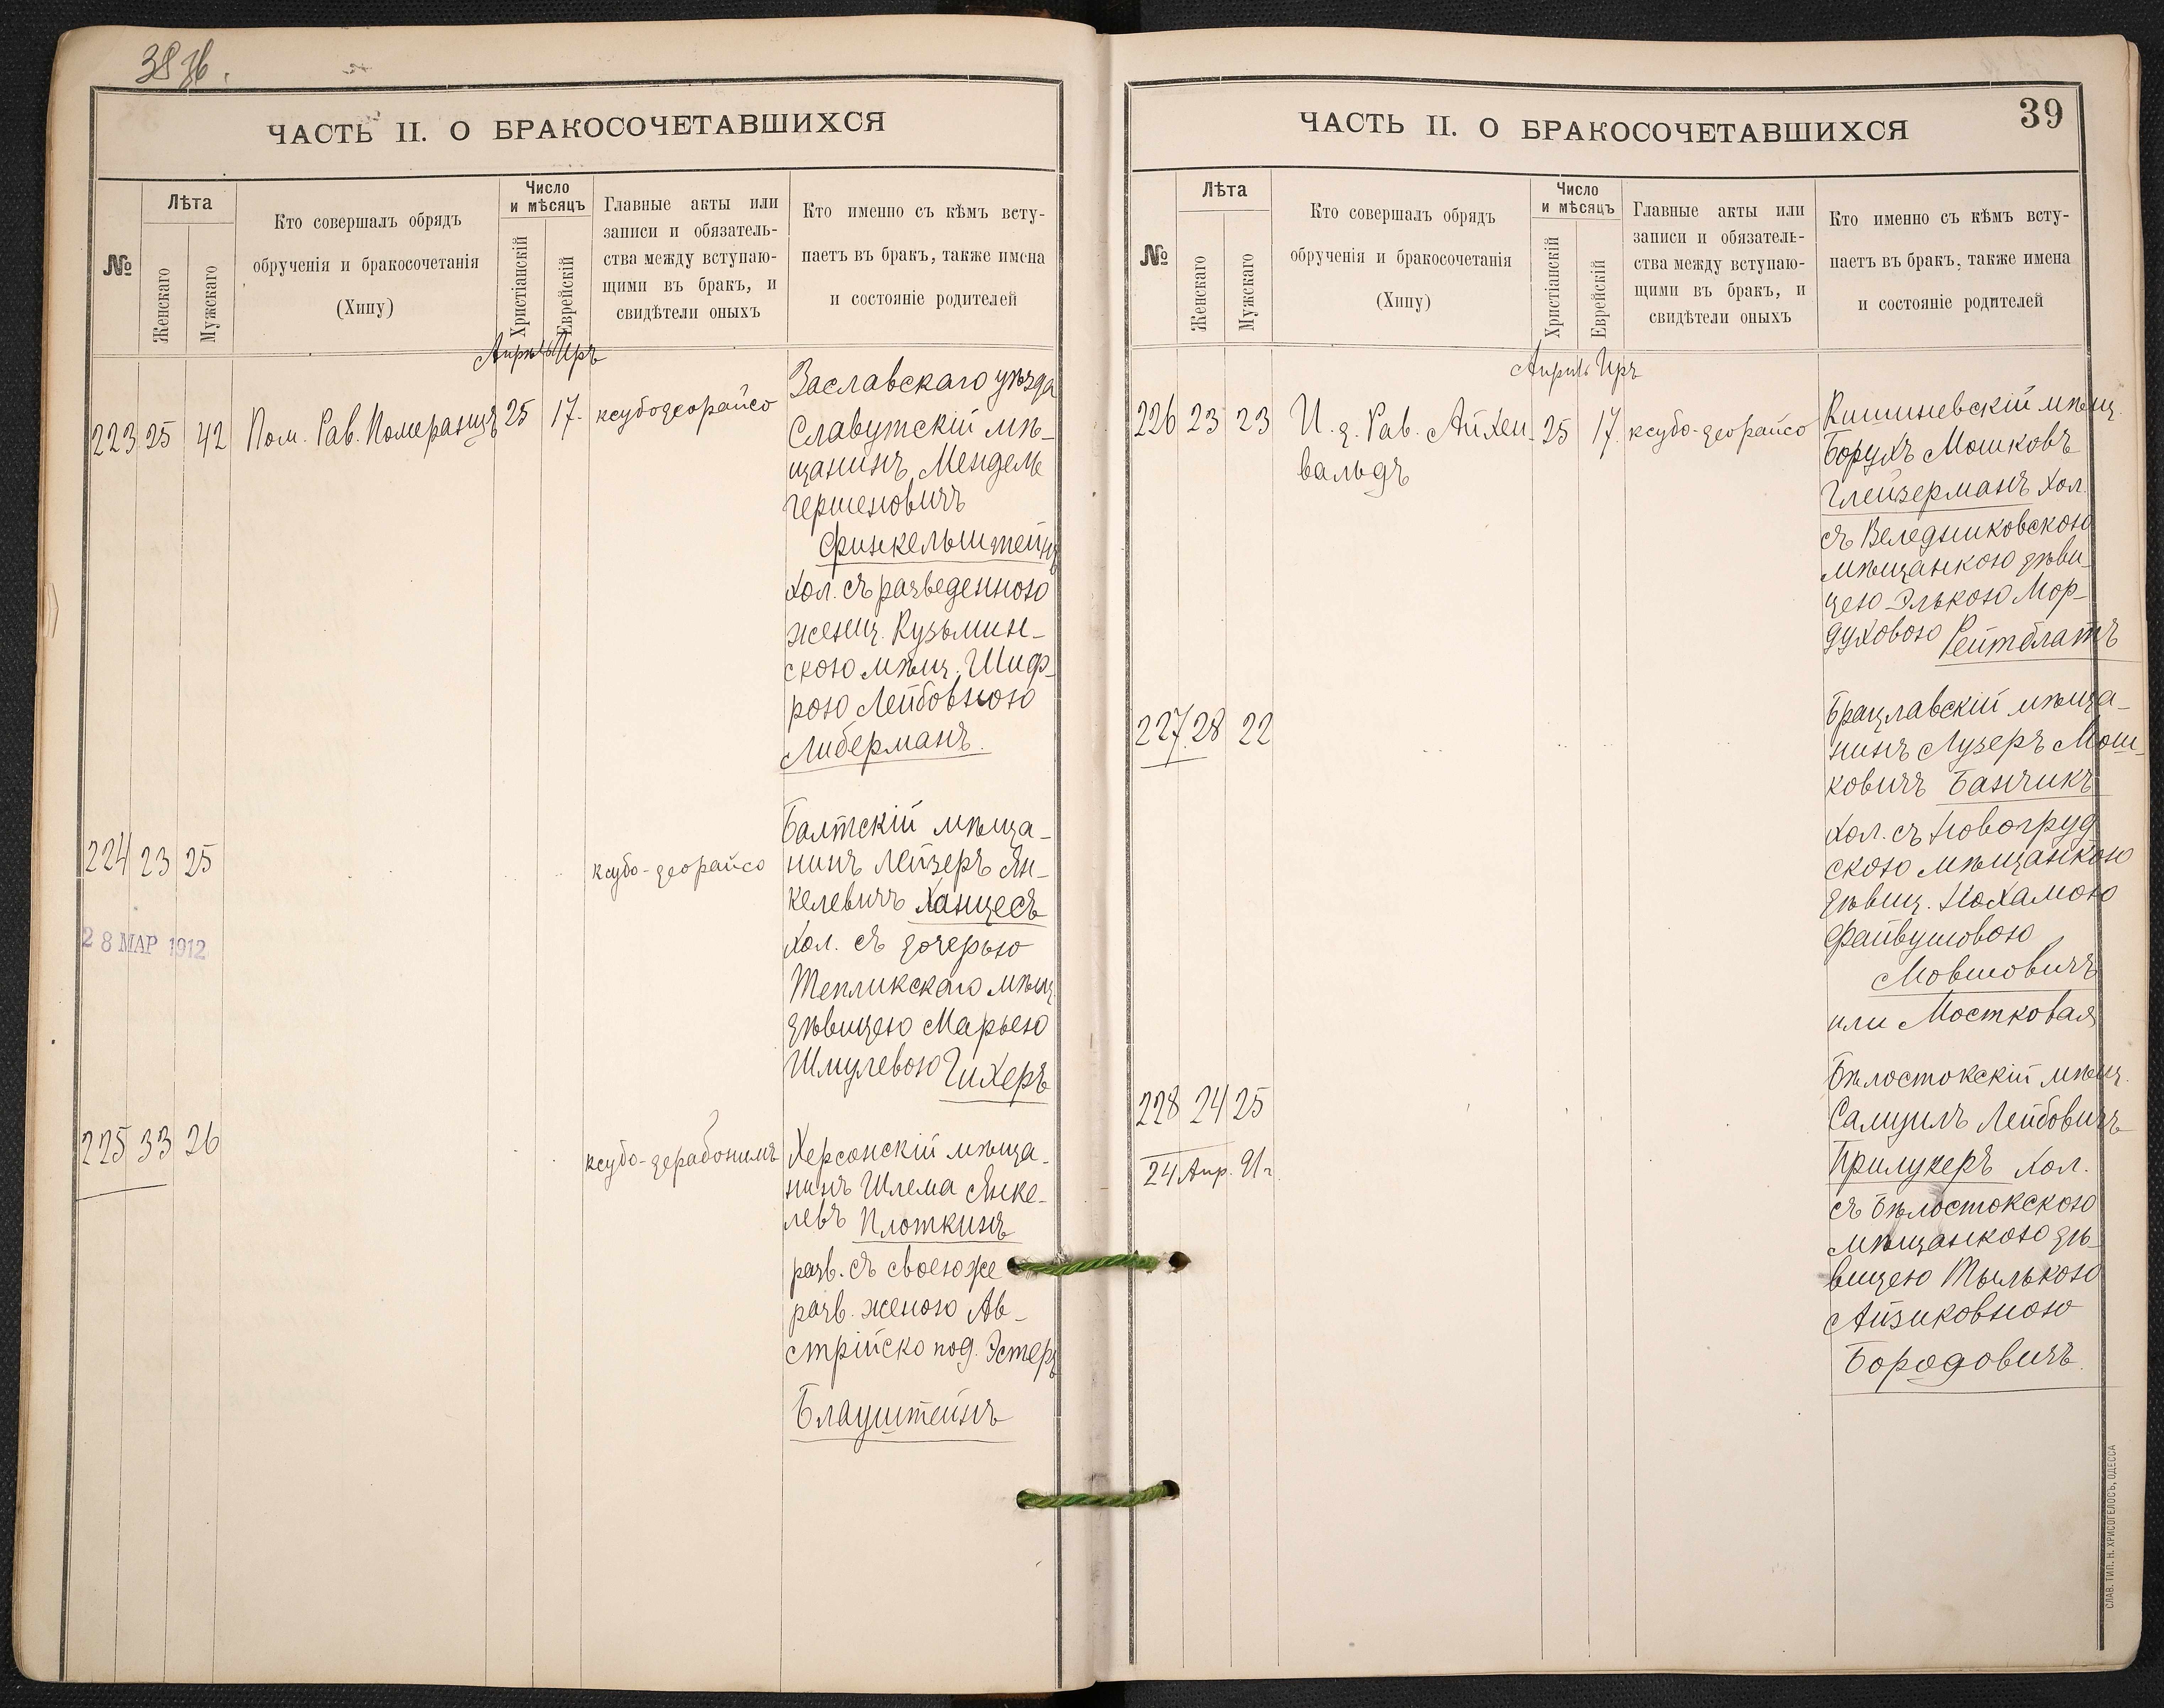 38 об.
ЧАСТЬ II. О БРАКОСОЧЕТАВШИХСЯ
№
Лѣта
Женскаго
Мужскаго
Кто совершалъ обрядъ
обрученія и бракосочетанія
(Хипу)
Число
и мѣсяцъ
Христіанскій
Еврейскій
Главные акты или
записи и обязатель-
ства между вступаю-
щими въ бракъ, и
свидѣтели оныхъ
Кто именно съ кѣмъ всту-
паетъ въ бракъ, также имена
и состояніе родителей
Апрель Иръ
223 25 42 Пом. Рав. Померанцъ 25 17. ксубо деорайсо
Заславскаго уѣзда
Славутскій мѣ-
щанинъ, Мендель
Гершеновичъ
Финкельштейнъ
хол. съ разведенною
женщ. Кузьмин-
скою мѣщ. Шиф-
рою Лейбовною
Либерманъ.
224 23 25 ксубо-деорайсо
Балтскій мѣща-
нинъ Лейзеръ Ян-
келевичъ Ханцесъ
хол. съ дочерью
Тепликскаго мѣщ.
дѣвицею Марьею
Шмулевою Чихеръ
28 МАР 1912
225 33 26 ксубо-дерабонимъ
Херсонскій мѣща-
нинъ Шлема Янке-
левъ Плоткинъ
разв. съ своею же
разв. женою Ав-
стрійско под. Эстеръ
Блауштейнъ
39
ЧАСТЬ II. О БРАКОСОЧЕТАВШИХСЯ
№
Лѣта
Женскаго
Мужскаго
Кто совершалъ обрядъ
обрученія и бракосочетанія
(Хипу)
Число
и мѣсяцъ
Христіанскій
Еврейскій
Главные акты или
записи и обязатель-
ства между вступаю-
щими въ бракъ, и
свидѣтели оныхъ
Кто именно съ кѣмъ всту-
паетъ въ бракъ, также имена
и состояніе родителей
Апрель Иръ
226 23 23 И. д. Рав. Айхен- 25 17. ксубо-деорайсо
вальдъ
Кишиневскій мѣщ.
Борухъ Мошковъ
Глейзерманъ хол.
съ Веледниковскою
мѣщанкою дѣви-
цею Элькою Мор-
духовою Рейтблатъ
227. 28 22
Брацлавскій мѣща-
нинъ Лузеръ Мош-
ковичъ Банчикъ
хол. съ Новогруд
скою мѣщанкою
дѣвиц. Нахамою
Файвушовою
Мовшовичъ
или Мостковая
228 24 25
24 Апр. 91 г.
Бѣлостокскій мѣщ.
Самуилъ Лейбовичъ
Прилукеръ хол.
съ Бѣлостокскою
мѣщанкою дѣ-
вицею Тылькою
Айзиковною
Бородовичъ.
СЛАВ. ТИП. Н. ХРИСОГЕЛОСЪ, ОДЕССА